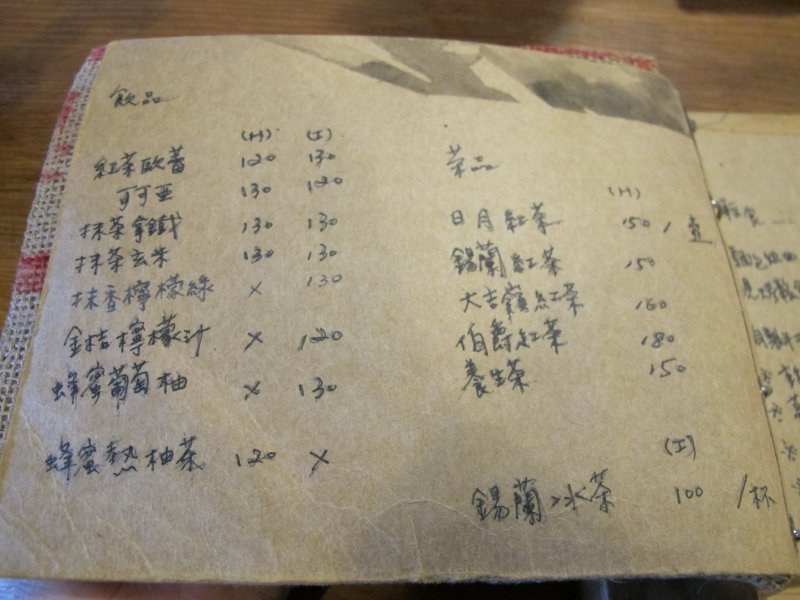 飲品
(H) (I)
紅茶歐蕾 120 130
可可亞 130 120
抹茶拿鐵 130 130
抹茶玄米 130 130
抹香檸檬綠 x 130
金桔檸檬汁 x 120
蜂蜜葡萄柚 x 130
蜂蜜熱柚茶 120 x
茶品
(H)
日月紅茶 150 / 壺
錫蘭紅茶 150
大吉嶺紅茶 160
伯爵紅茶 180
養生茶 150
(I)
錫蘭冰茶 100 /杯